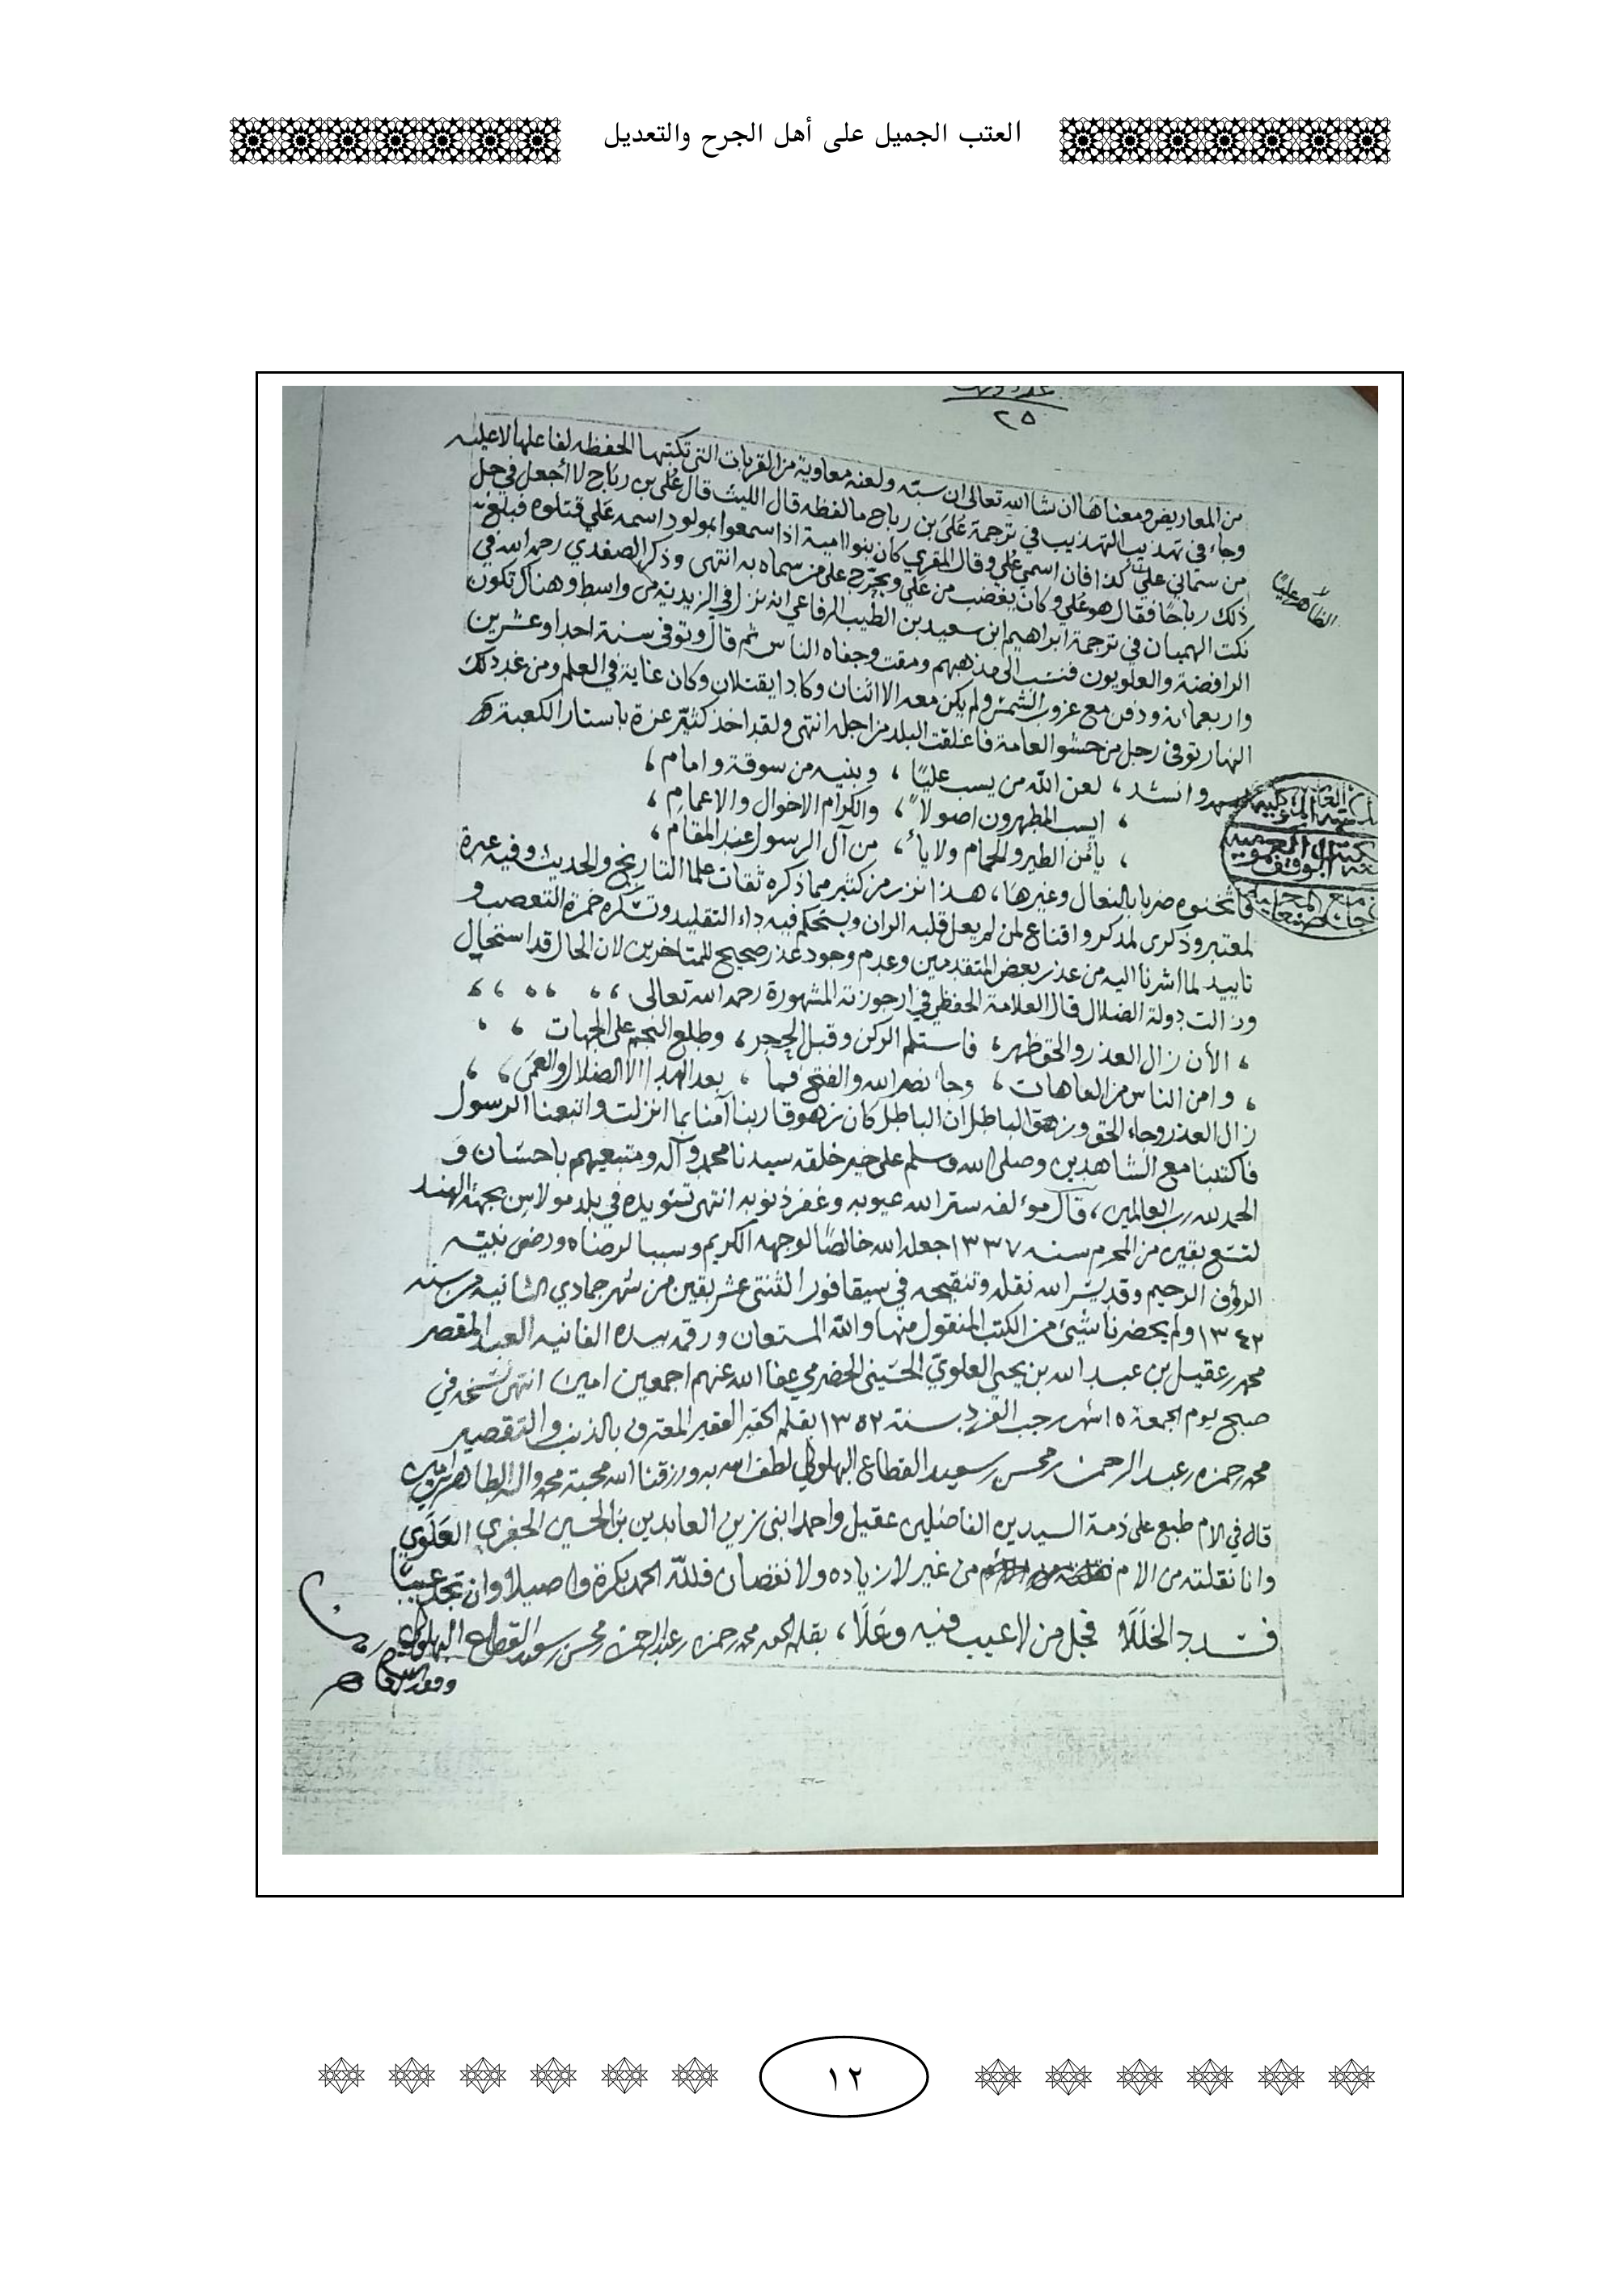 العتب الجميل على أهل الجرح والتعديل
٢٥
من المعاريض ومعناها ان شا الله تعالى ان سبّه ولعنه معاوية من القربات التي تكتبها الحفظه لفاعلها لا عليه
وجاء في تهذيب التهذيب في ترجمة عُلَي بن رباح ما لفظه قال الليث قال عُلَي بن رباح لا اجعل في حل
من سماني علي فان اسمي عُلي وقال المقري كان بنوا امية اذا سمعوا بمولود اسمه عَلي قتلوه فبلغ
ذلك رباحًا فقال هو عُلي وكان يغضب من عَلي ويحرّج على من سماه به انتهى وذكر الصفدي رحمه الله في
نكت الهميان في ترجمة ابراهيم ابن سعيد بن الطيب الرفاعي انه نزل في الزيدية من واسط وهناك تكون
الرافضة والعلويون فنسب الى مذهبهم ومقت وجفاه الناس ثم قال وتوفى سنة احدا وعشرين
واربعمائة ودفن مع غروب الشمس ولم يكن معه الا اثنان وكادا يقتلان وكان غاية في العلم ومن غد ذلك
النهار توفى رجل من حشو العامة فاغلقت البلد من اجله انتهى ولقد اخذ كثيّر عزة باستار الكعبة
وانشد ، لعن الله من يسب عليًا ، وبنيه من سوقة وامام ،
، ايسب المطهرون اصولاً ، والكرام الاخوال والاعمام ،
، يأمن الطير والحمام ولا يأ ، من آل الرسول عند المقام ،
فاثخنوه ضربا بالنعال وغيرها ، هذا نزر من كثير مما ذكره ثقات علما التاريخ والحديث وفيه عبرة
لمعتبر وذكرى لمدكر واقناع لمن لم يعل قلبه الران ويستحكم فيه داء التقليد وتسكره خمرة التعصب و
تاييد لما اشرنا اليه من عذر بعض المتقدمين وعدم وجود عذر صحيح للمتاخرين لان الحال قد استحال
وزالت دولة الضلال قال العلامة الحفظي في ارجوزته المشهورة رحمه الله تعالى ،
، الأن زال العذر والحق ظهر ، فاستلم الركن وقبل الحجر ، وطلع النجم على الجهات ،
، وامن الناس من العاهات ، وجا نصر الله والفتح فما ، بعد الهدا الا الضلال والعمى ،
زال العذر وجاء الحق وزهق الباطل ان الباطل كان زهوقا ربنا آمنا بما انزلت واتبعنا الرسول
فاكتبنا مع الشاهدين وصلى الله وسلم على خير خلقه سيدنا محمد وآله ومتبعيهم باحسان و
الحمد لله رب العالمين ، قال مؤلفه ستر الله عيوبه وغفر ذنوبه انتهى تسويده في بلد مولاسن بجهة الهند
لتسع بقين من المحرم سنه ١٣٣٧ جعله الله خالصًا لوجهه الكريم وسببا لرضاه ورضى نبيّه
الرؤف الرحيم وقد يسّر الله نقله وتنقيحه في سيقافورا لثنتى عشر بقين من شهر جمادي الثانيه من سنه
١٣٤٢ ولم يحضرنا شيئ من الكتب المنقول منها والله المستعان ورقمه بيده الفانيه العبد المقصر
محمد بن عقيل بن عبد الله بن يحيى العلويّ الحسيني الحضرمي عفا الله عنهم اجمعين امين انتهى نسخه في
صبح يوم الجمعه ١٥ شهر رجب الفرد سنة ١٣٥٢ بقلم الحقير الفقير المعترف بالذنب والتقصير
محمد حمزه بن عبد الرحمن بن محسن سعيد القطاع البهلولي لطف الله به ورزقنا الله محبة محمد واله الطاهرين امين
قال في الام طبع على ذمة السيدين الفاضلين عقيل واحمد ابنى زين العابدين بن الحسين الجفري العَلَوي
وانا نقلته من الام من غير لا زياده ولا نقصان فلله الحمد بكرة واصيلا وان تجد عيبًا
فسد الخلَلَا فجل من لا عيب فيه وعَلَا ، بقلم محمد حمزه بن عبد الرحمن بن محسن سعيد القطاع البهلولي
الظاهر عليًا
١٢